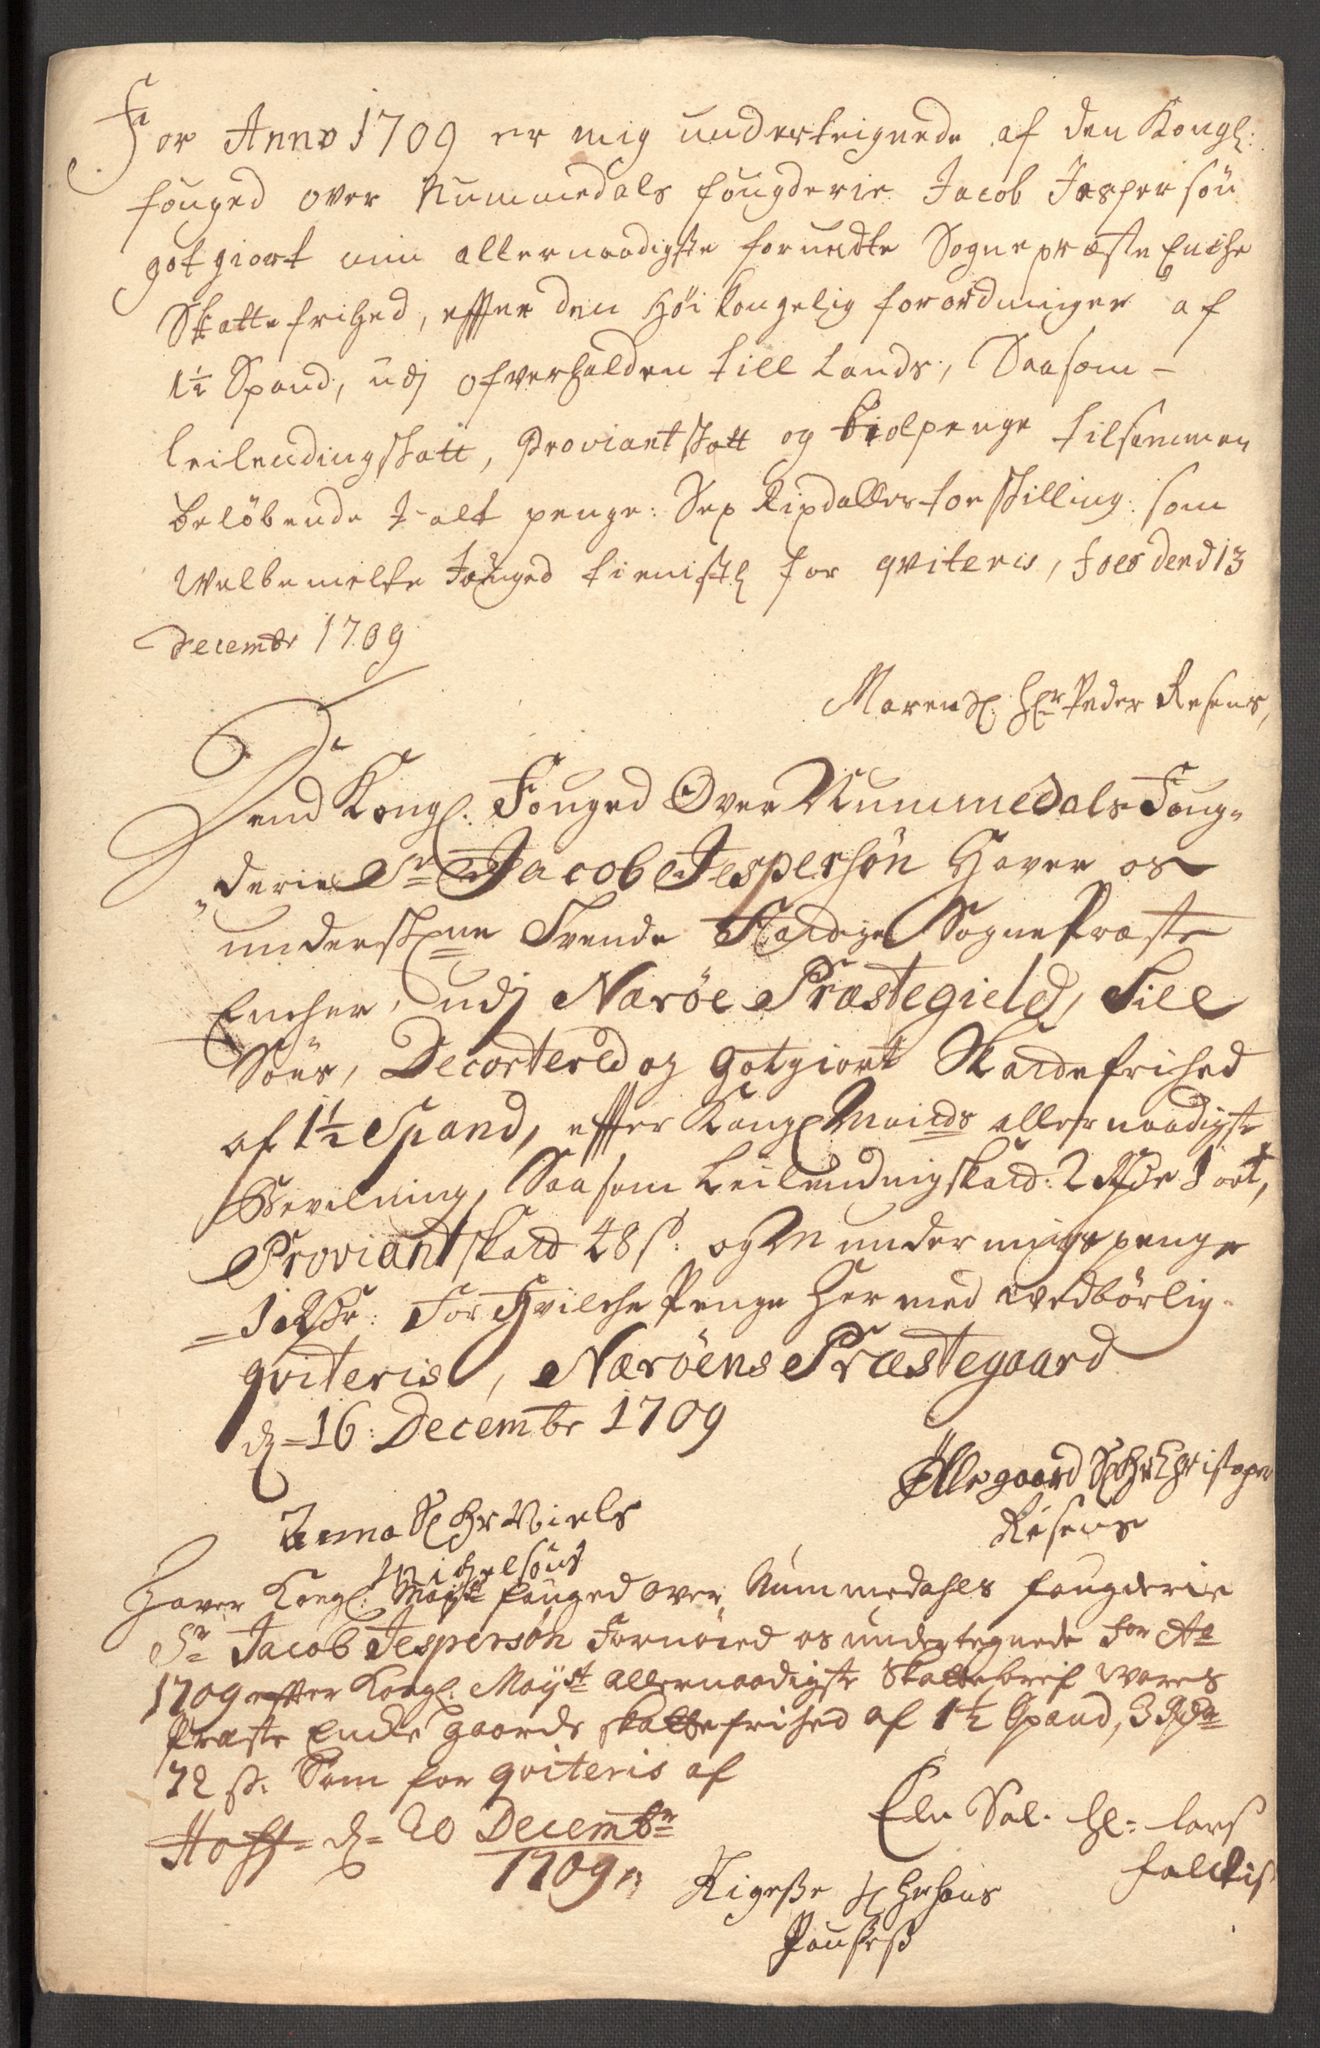 For Anno 1709 er mig underteignede af den Kongl:
fouged over Nummedals fougderie Jacob Jespersøn
gotgiort min allernaadigste forundte Sognepræste Enche
Skattefrihed, effter den Høikongelig forordninger af
1½ Spand, udj ofverhalden till Lands, Saasom –
leilendingskatt, Proviantskatt og Kiolpenge tilsammen
beløbende J-alt penge: Sex Rixdaller toe skilling: som
Welbemelte Fouged tienistl for qviteris, Foes dend 13
Decembr 1709
Maren Sl. Hr Peder Resens,
Dend Kongl. Fouged Over Nummedals Foug-
derie Sr Jacob Jespersøn Haver os
underskne Tvende Sogne Præste
Encher, udj Nærøe Præstegield, Till
Søes, Decortered og gotgiort Skattefrihed
af 1½ Spand, effter Kongl Maitds allernaadigste
Bevilning, Saasom Leilendingskatt: 2 Rdr 1 ort,
Proviantskatt 48 s: og Munderingspenge
1 Rdr: For Hvilche Penge Her med vedbørlig
qviteris, Nærøens Præstegaard
d= 16: Decembr 1709
Ellegaard Sl Hr Christopher
Resens
Anna Sl Hr Niels
Michelsøns
Haver Kongl. Mayst fouged over Nummedahls fougderie
Sr Jacob Jespersøn Fornøied os undertegnede for Ao
1709 effter Kongl. Mayst allernaadigste Skattebref vores
Præste Encke gaards skattefrihed af 1½ Spand, 3 Rdr
72 s. Som her qviteris af
Hoff d= 20 Decembr
1709
Elen Sal. Hr= Lars
Falckis
Sl Hr Hans